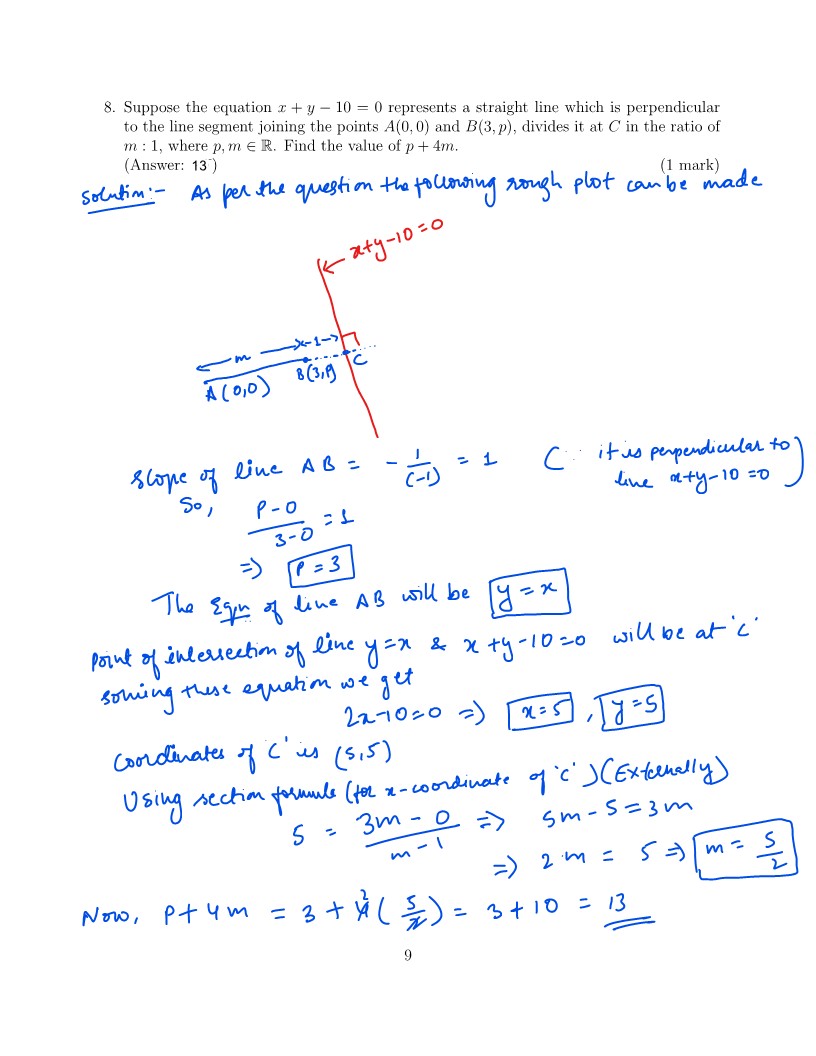 8. Suppose the equation x + y − 10 = 0 represents a straight line which is perpendicular
to the line segment joining the points A(0, 0) and B(3, p), divides it at C in the ratio of
m : 1, where p, m ∈ ℝ. Find the value of p + 4m.
(Answer: 13 ) (1 mark)
Solution:- As per the question the following rough plot can be made
x+y-10=0
m
x-1->
C
B(3,P)
A(0,0)
Slope of line AB = - 1/(-1) = 1 (∵ it is perpendicular to
line x+y-10=0)
So, P-0/3-0 = 1
=> P = 3
The Eqn of line AB will be y = x
Point of intersection of line y=x & x+y-10=0 will be at 'C'
solving these equation we get
2x-10=0 => x=5 , y=5
Coordinates of C' is (5,5)
Using section formula (for x-coordinate of 'C') (Externally)
5 = 3m - 0/m - 1 => 5m - 5 = 3m
=> 2m = 5 => m = 5/2
Now, P+4m = 3 + 4 2 (5/2) = 3 + 10 = 13
9